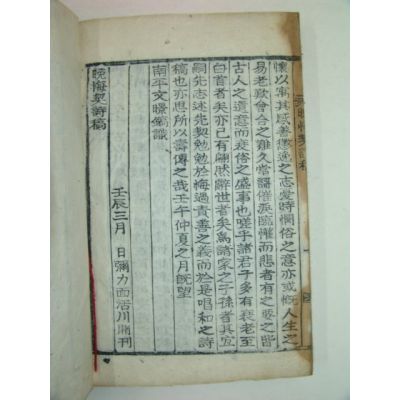 懷以寓其感善懲逸之志愛時憫俗之意亦或慨人生之
易老歎會合之難久當謳催臨觴而悲者有之要之皆
古人之遺意而衰俗之盛事也嗟乎諸君子多有衰老至
首者矣亦已有翩然辭世者矣爲諸家之子孫者其宜
嗣先志述先契勉勉於悔過責善之義而於是唱和之詩
稿也亦思所以壽傳之哉壬午仲夏之月旣望
南平文暻鎬識
壬辰三月　日彌力面活川開刊
晩悔契詩稿